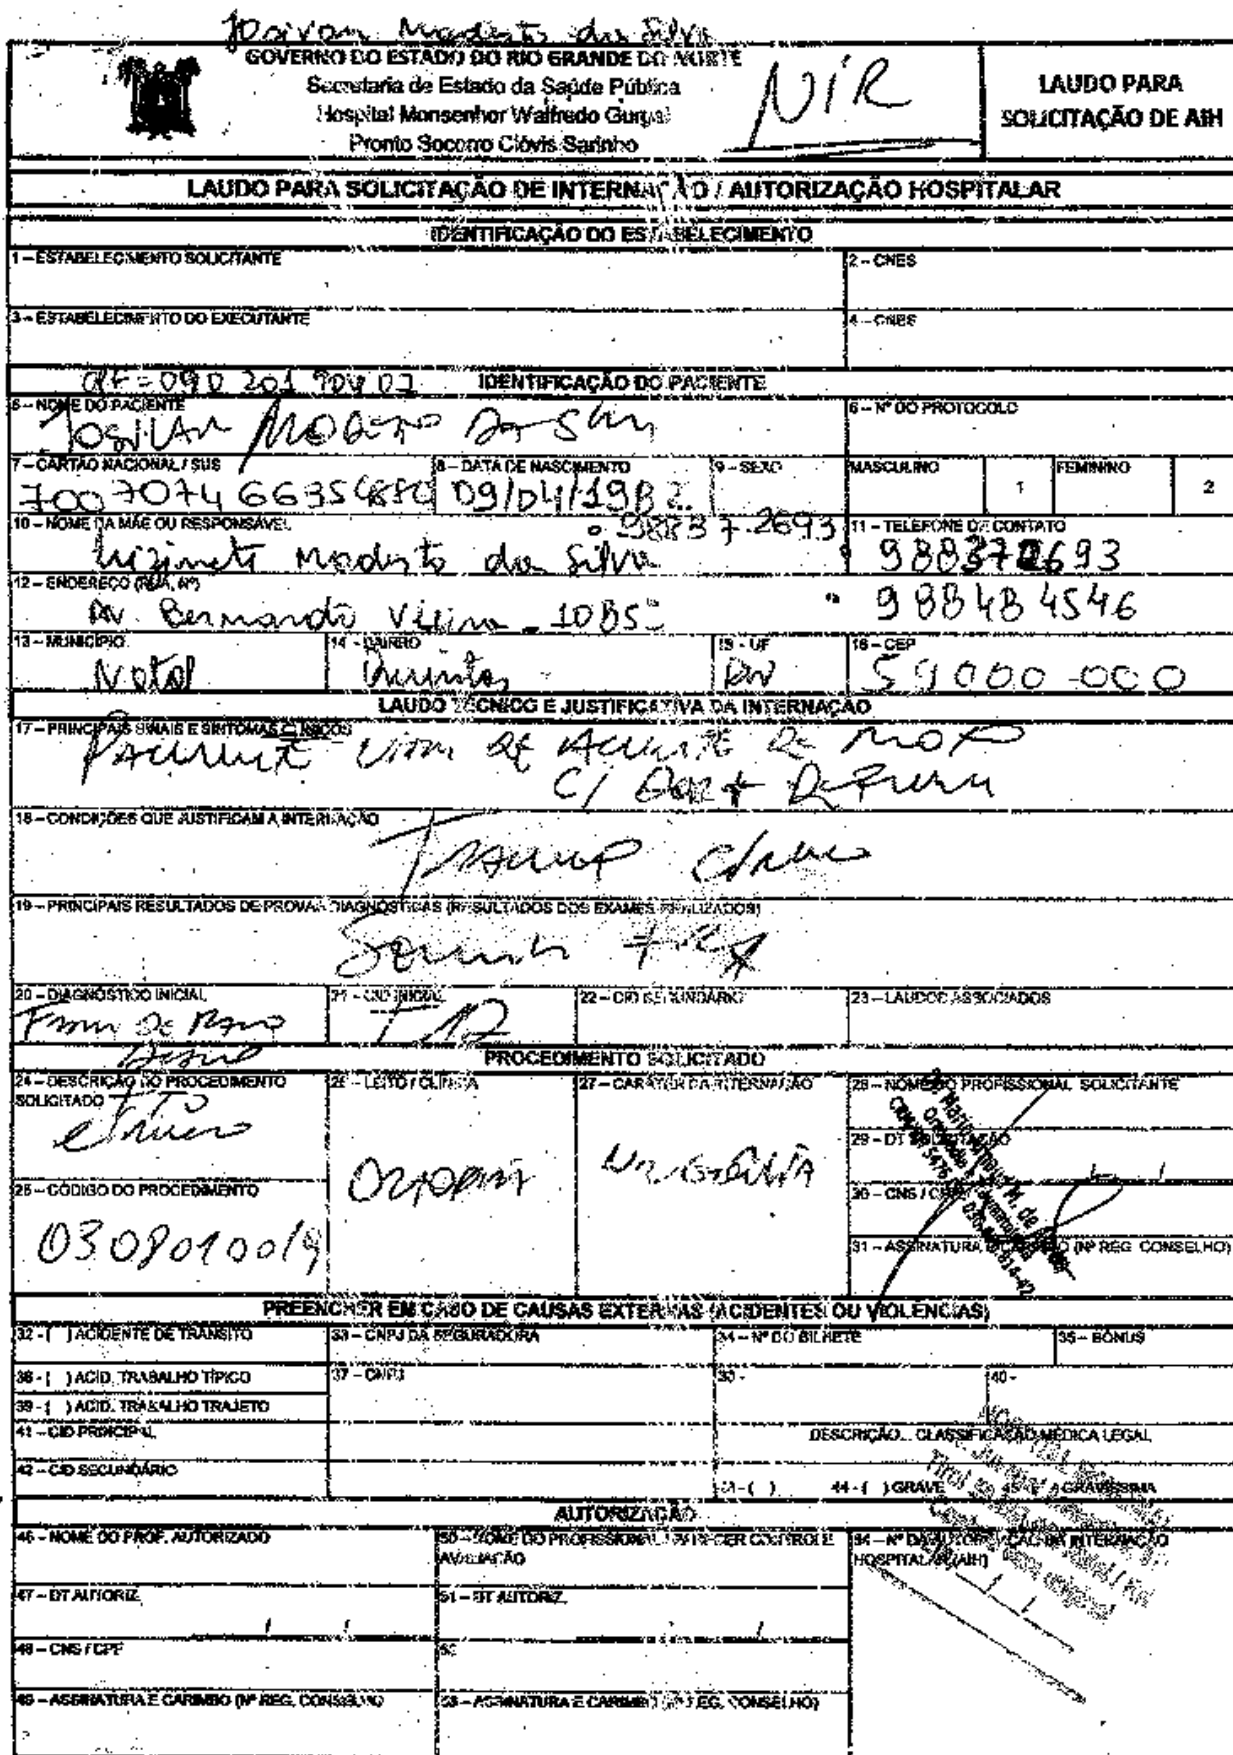 Josivan Modesto da Silva
GOVERNO DO ESTADO DO RIO GRANDE DO NORTE
Secretaria de Estado da Saúde Pública
Hospital Monsenhor Walfredo Gurgel
Pronto Socorro Clóvis Sarinho
NIR
LAUDO PARA
SOLICITAÇÃO DE AIH
LAUDO PARA SOLICITAÇÃO DE INTERNAÇÃO / AUTORIZAÇÃO HOSPITALAR
IDENTIFICAÇÃO DO ESTABELECIMENTO
1 – ESTABELECIMENTO SOLICITANTE
2 – CNES
3 – ESTABELECIMENTO DO EXECUTANTE
4 – CNES
IDENTIFICAÇÃO DO PACIENTE
5 – NOME DO PACIENTE
6 – Nº DO PROTOCOLO
7 – CARTÃO NACIONAL / SUS
8 – DATA DE NASCIMENTO
09/04/1982
9 – SEXO
MASCULINO 1
FEMININO 2
10 – NOME DA MÃE OU RESPONSÁVEL
98837-2693
Luzinete Modesto da Silva
11 – TELEFONE DE CONTATO
988372693
988484546
12 – ENDEREÇO (RUA, Nº)
Av. Bernardo Vieira - 1085
13 – MUNICÍPIO
Natal
14 – BAIRRO
Quintas
15 – UF
RN
16 – CEP
59000-000
LAUDO TÉCNICO E JUSTIFICATIVA DA INTERNAÇÃO
17 – PRINCIPAIS SINAIS E SINTOMAS CLÍNICOS
Paciente vítima de acidente de moto
c/ dor +
18 – CONDIÇÕES QUE JUSTIFICAM A INTERNAÇÃO
19 – PRINCIPAIS RESULTADOS DE PROVAS DIAGNÓSTICAS (RESULTADOS DOS EXAMES REALIZADOS)
20 – DIAGNÓSTICO INICIAL
21 – CID INICIAL
22 – CID SECUNDÁRIO
23 – LAUDOS ASSOCIADOS
PROCEDIMENTO SOLICITADO
24 – DESCRIÇÃO DO PROCEDIMENTO
SOLICITADO
25 – CÓDIGO DO PROCEDIMENTO
0308010019
26 – LEITO / CLÍNICA
Ortopedia
27 – CARÁTER DA INTERNAÇÃO
Urgência
28 – NOME DO PROFISSIONAL SOLICITANTE
29 – DT SOLICITAÇÃO
30 – CNS / CPF
31 – ASSINATURA E CARIMBO (Nº REG. CONSELHO)
PREENCHER EM CASO DE CAUSAS EXTERNAS (ACIDENTES OU VIOLÊNCIAS)
32 - ( ) ACIDENTE DE TRÂNSITO
33 – CNPJ DA SEGURADORA
34 – Nº DO BILHETE
35 – BÔNUS
36 - ( ) ACID. TRABALHO TÍPICO
37 – CNPJ
38 -
40 -
39 - ( ) ACID. TRABALHO TRAJETO
41 – CID PRINCIPAL
DESCRIÇÃO... CLASSIFICAÇÃO MÉDICA LEGAL
42 – CID SECUNDÁRIO
44 - ( ) GRAVE
GRAVÍSSIMA
AUTORIZAÇÃO
46 – NOME DO PROF. AUTORIZADO
50 – NOME DO PROFISSIONAL CONTROLE E
AVALIAÇÃO
54 – Nº DA AUTORIZAÇÃO DA INTERNAÇÃO
HOSPITALAR (AIH)
47 – DT AUTORIZ.
51 – DT AUTORIZ.
48 – CNS / CPF
52
49 – ASSINATURA E CARIMBO (Nº REG. CONSELHO)
53 – ASSINATURA E CARIMBO (Nº REG. CONSELHO)